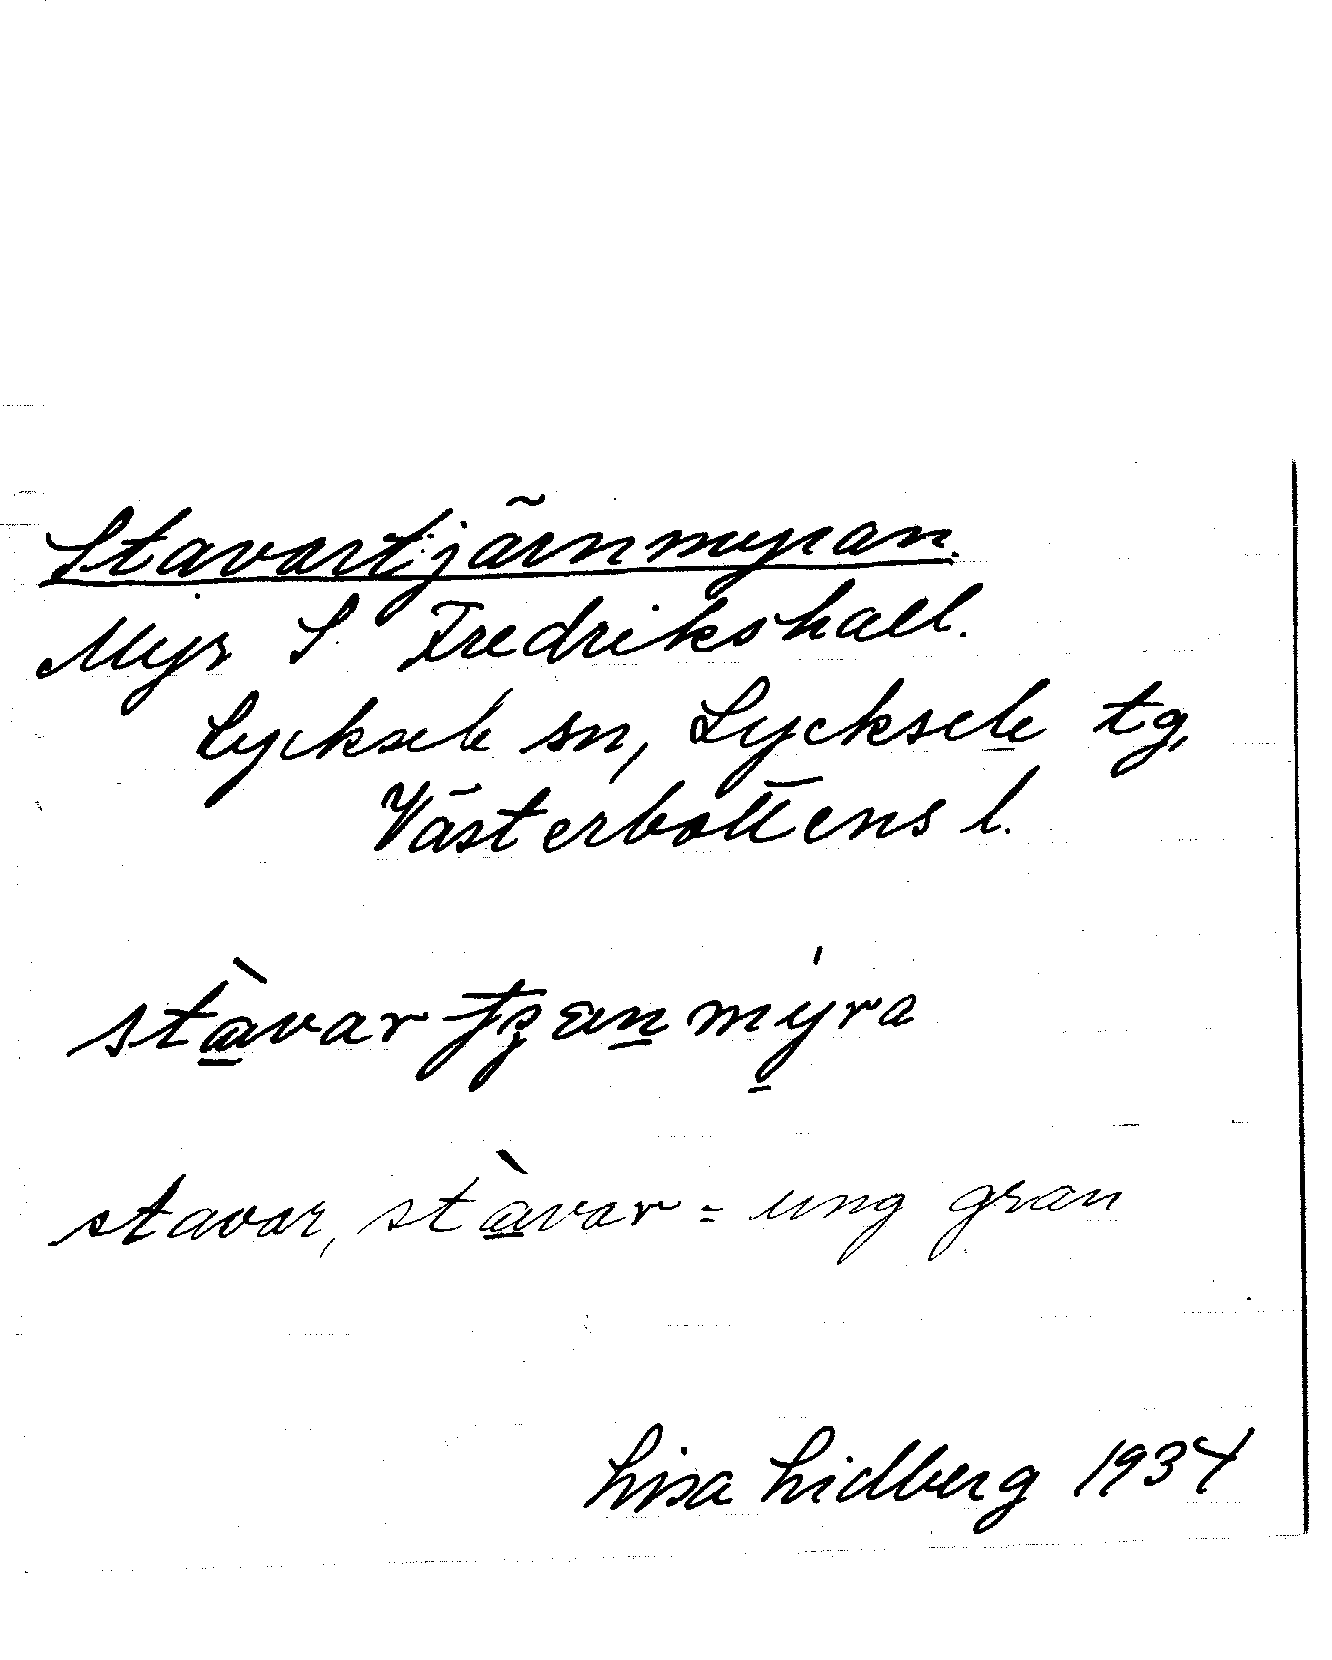 Stavartjärnmyran.
Myr S Fredrikshall.
Lycksele sn, Lycksele tg,
Västerbottens l.
stàvar tʒæn mýra
stavar, stàvar = ung gran
Lisa Lidberg 1934